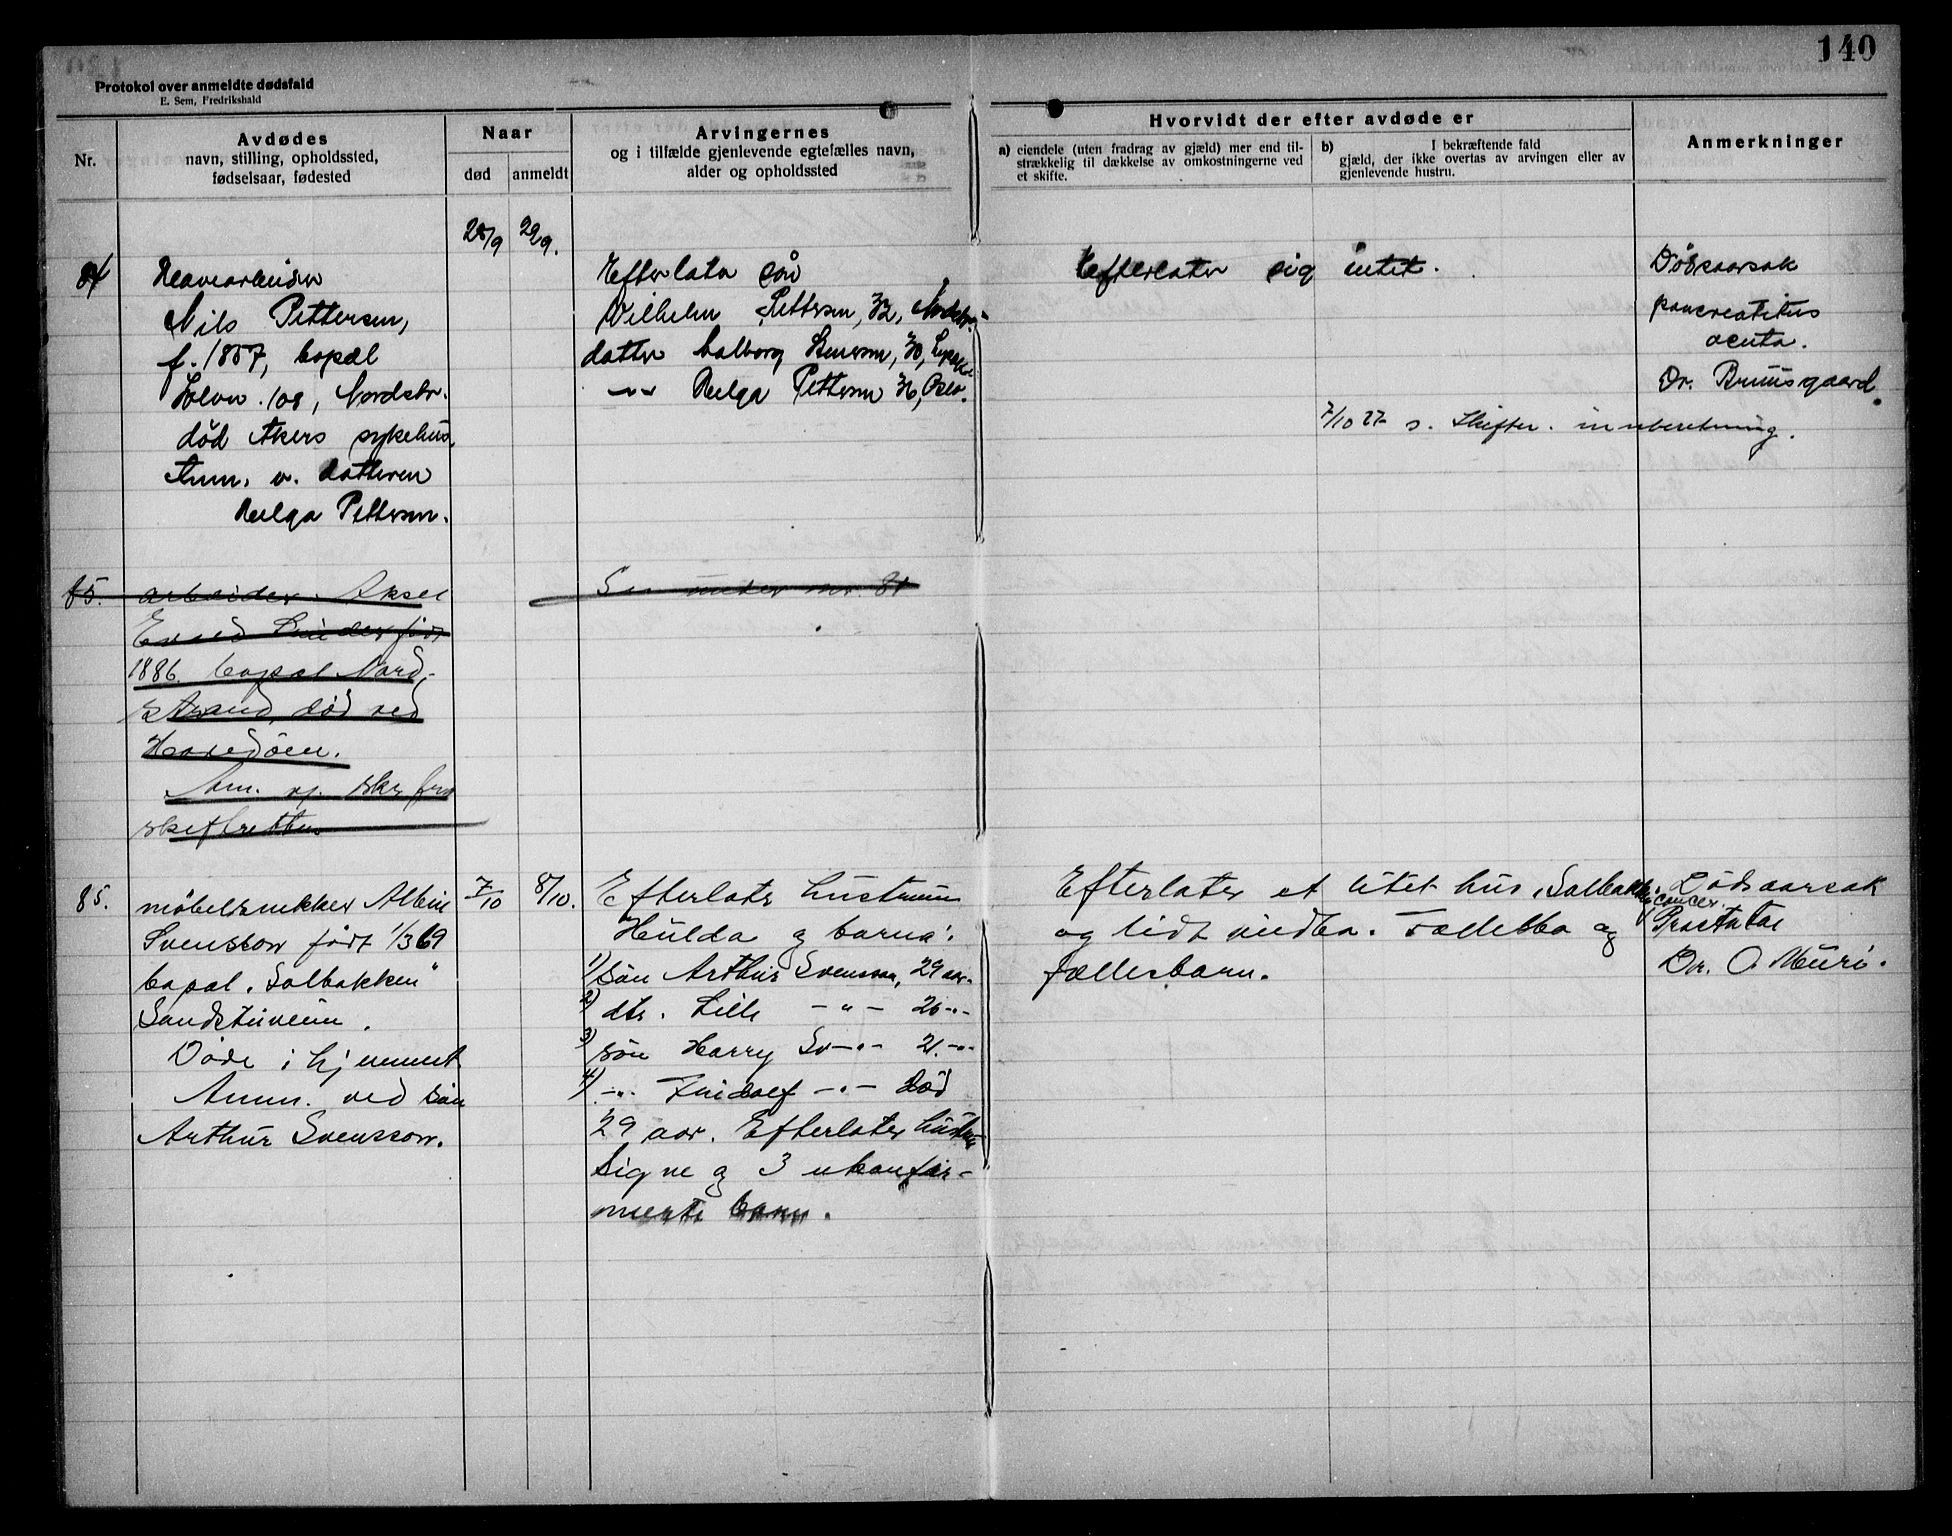 140
Protokol over anmeldte dødsfald
E. Sem, Fredrikshald
Nr.
Avdødes
navn, stilling, opholdssted,
fødselsaar, fødested
Naar
død
anmeldt
Arvingernes
og i tilfælde gjenlevende egtefælles navn,
alder og opholdssted
Hvorvidt der efter avdøde er
a) eiendele (uten fradrag av gjæld) mer end til-
strækkelig til dækkelse av omkostningerne ved
et skifte.
b) I bekræftende fald
gjæld, der ikke overtas av arvingen eller av
gjenlevende hustru.
Anmerkninger
84
Havearbeider
Nils Pettersen,
f. 1857, bopæl
108, Nordstr.
død Akers sykehus.
Anm. v. datteren
Helga Pettersen.
28/9
29/9.
Efterlater søn
Wilhelm Pettersen, 32, Nordstr.
datter Valborg 30,
-"- Helga Pettersen Oslo.
Efterlater sig intet.
Dødsaarsak
pancreatitus
acuta.
Dr. Bruusgaard.
7/10 27 s. Skifter. innberetning.
85. arbeider Aksel
født
1886. bopæl Nord-
strand, død ved
Hovedøen.
Anm. v. skr. fra
skifteretten
Se under nr. 81
85.
møbelsnekker Albin
Svensson født 1/3 69
bopæl "Solbakken"
Sandstuveien.
Døde i hjemmet
Anm. ved søn
Arthur Svensson.
7/10
8/10.
Efterlater hustruen
Hulda og barna:
1) søn Arthur Svensson, 29 aar.
2) dtr. Lilli -"- 26 -"-
3) søn Harry Sv -"- 21. -"-
4) -"- Fridolf -"- død
29 aar. Efterlater hustru
Signe og 3 ukonfir-
merte barn.
Efterlater et litet hus, Solbakken,
og lidt indbo. Fællesbo og
fællesbarn.
Dødsaarsak
cancer
Prostatae
Dr. O. Muri.